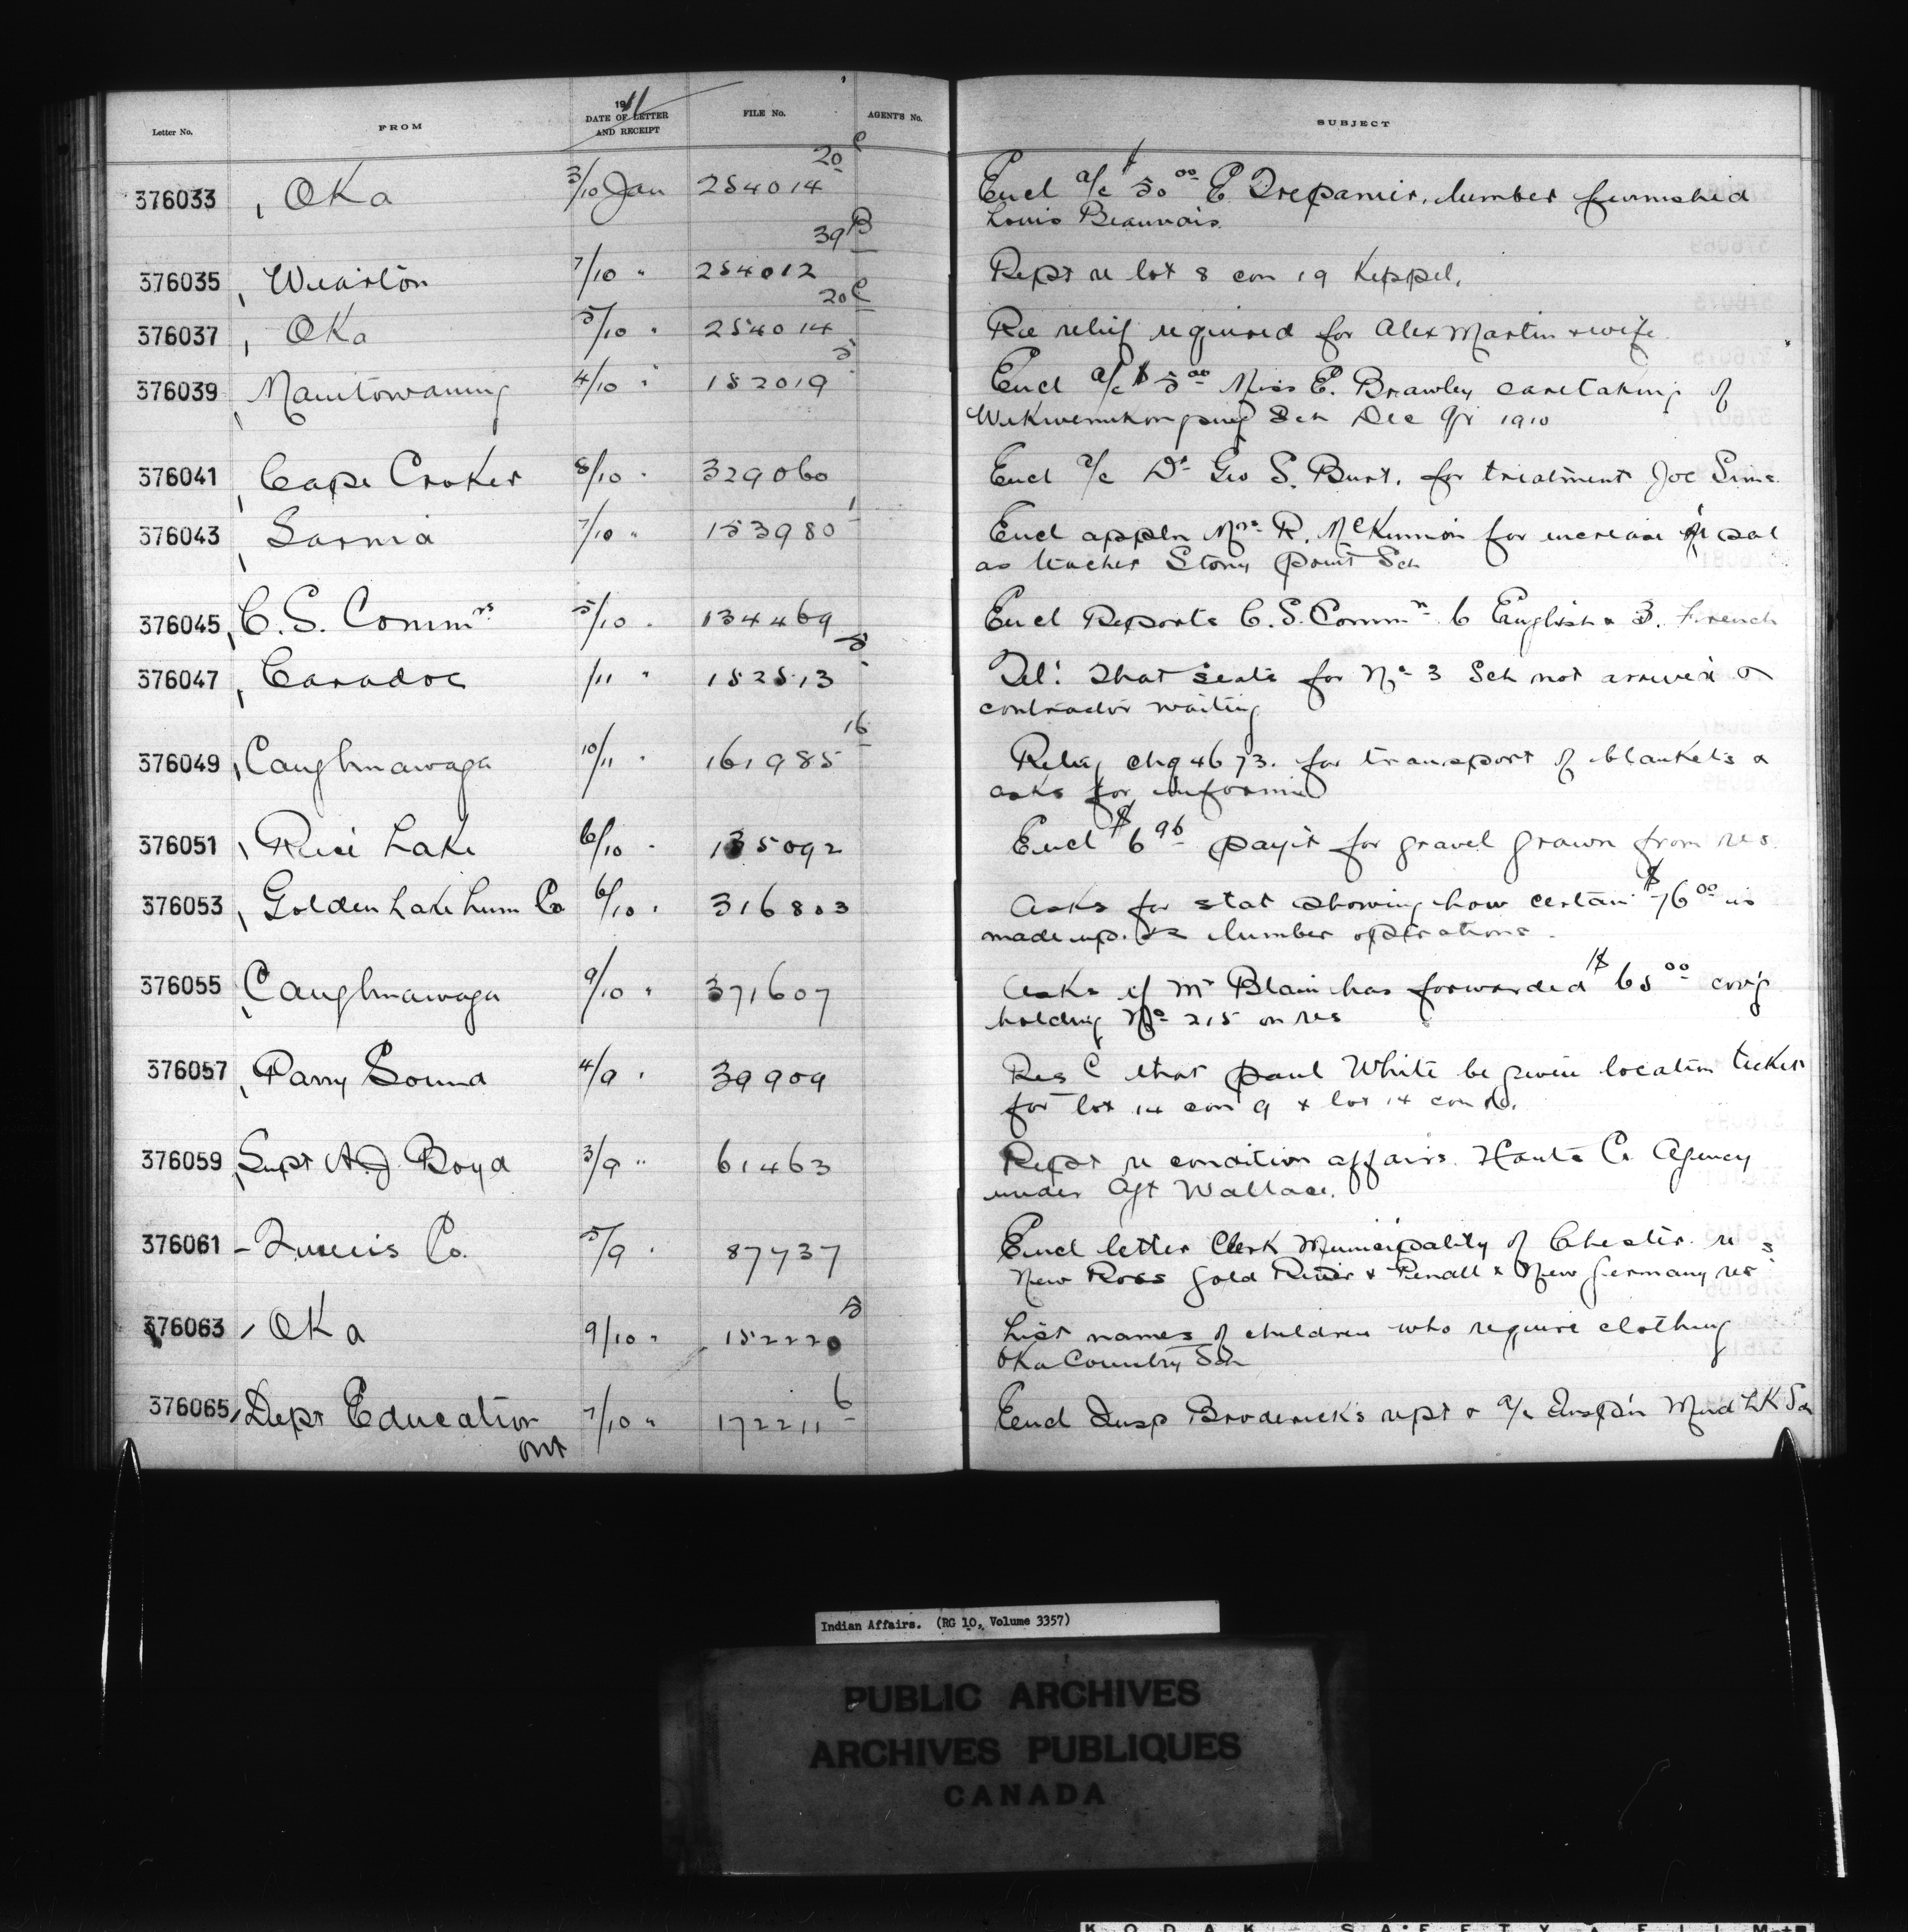 1911
Letter No. FROM DATE OF LETTER AND RECEIPT FILE No. AGENTS No. SUBJECT
376033 Oka 3/10 Jan 254014 20 C Encl a/c $50.00 E. Trepanier, lumber furnished
Louis Beauvais.
376035 Wiarton 7/10 " 254012 39 B Rept re lot 8 con 19 Keppel.
376037 Oka 5/10 " 254014 20 C Re relief required for Alex Martin & wife
376039 Manitowaning 4/10 " 152019 5 Encl a/c $5.00 Miss E. Brawley caretaking of
Wikwemikongsing Sch Dec Qr 1910
376041 Cape Croker 8/10 " 329060 Encl a/c Dr Geo S. Burt. for treatment Joe Sims.
376043 Sarnia 7/10 " 153980 1 Encl appln Mrs R. McKinnon for increase of sal
as teacher Stony Point Sch
376045 C.S. Commrs 5/10 " 134469 Encl Reports C.S. Commn 6 English & 3. French
376047 Caradoc /11 " 152513 5 Tel: That seats for No 3 Sch not arrived &
contractor waiting
376049 Caughnawaga 10/11 " 161985 16 chq 4673. for transport of blankets &
asks for informn
376051 Rice Lake 6/10 " 135092 Encl $6.96 paym't for gravel from res.
376053 Golden Lake Lum Co 6/10 " 316803 Asks for stat showing how certain $76.00 is
made up. re lumber operations.
376055 Caughnawaga 9/10 " 371607 Asks if Mr Blain has forwarded $65.00 cov'g
holding No 215 on res
376057 Parry Sound 4/9 " 39909 Res C that Paul White be given location ticket
for lot 14 con 9 & lot 14 con 10.
376059 Supt A.J. Boyd 3/9 " 61463 Rept re condition affairs. Hants Co. Agency
under Agt Wallace.
376061 - Co. 5/9 " 87737 Encl letter Clerk Municipality of Chester re
New Ross Gold River & Penall & New Germany res s
376063 Oka 9/10 " 152220 5 List names of children who require clothing
Oka Country Sch
376065 Dept Education 7/10 " 172211 6 Encl Insp Broderick's rept & a/c Inspn Mud Lk Sch
Ont
Indian Affairs. (RG 10, Volume 3357)
PUBLIC ARCHIVES
ARCHIVES PUBLIQUES
CANADA
KODAK SAFETY FILM